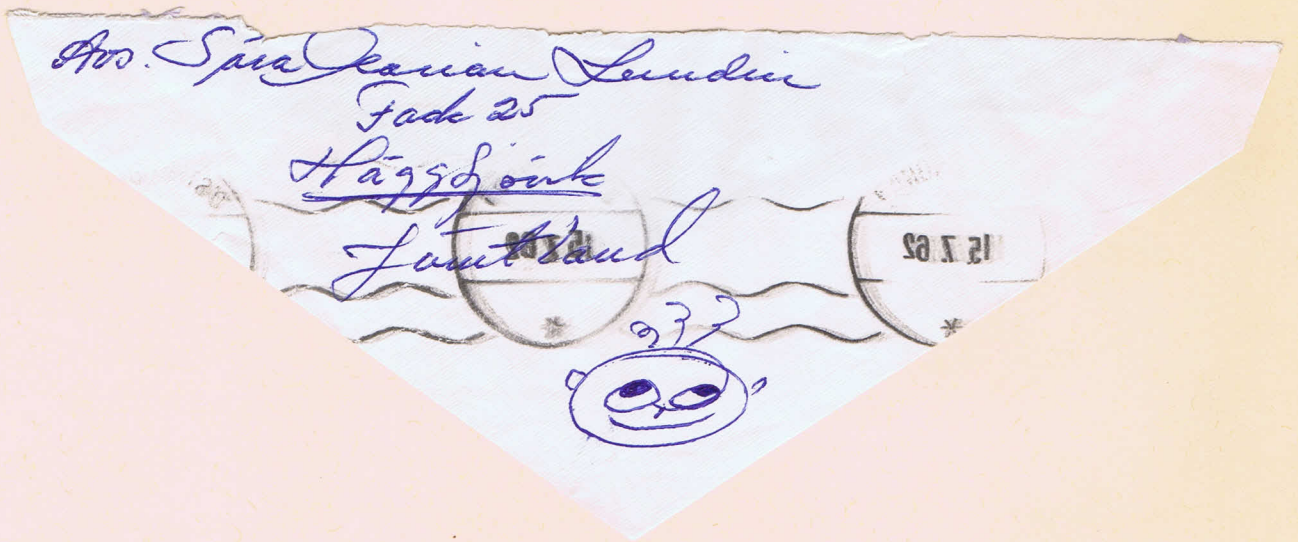 Avs. Sára Marian Lundin
Fack 25
Häggsjövik
Jämtland
15.7.62
15.7.62